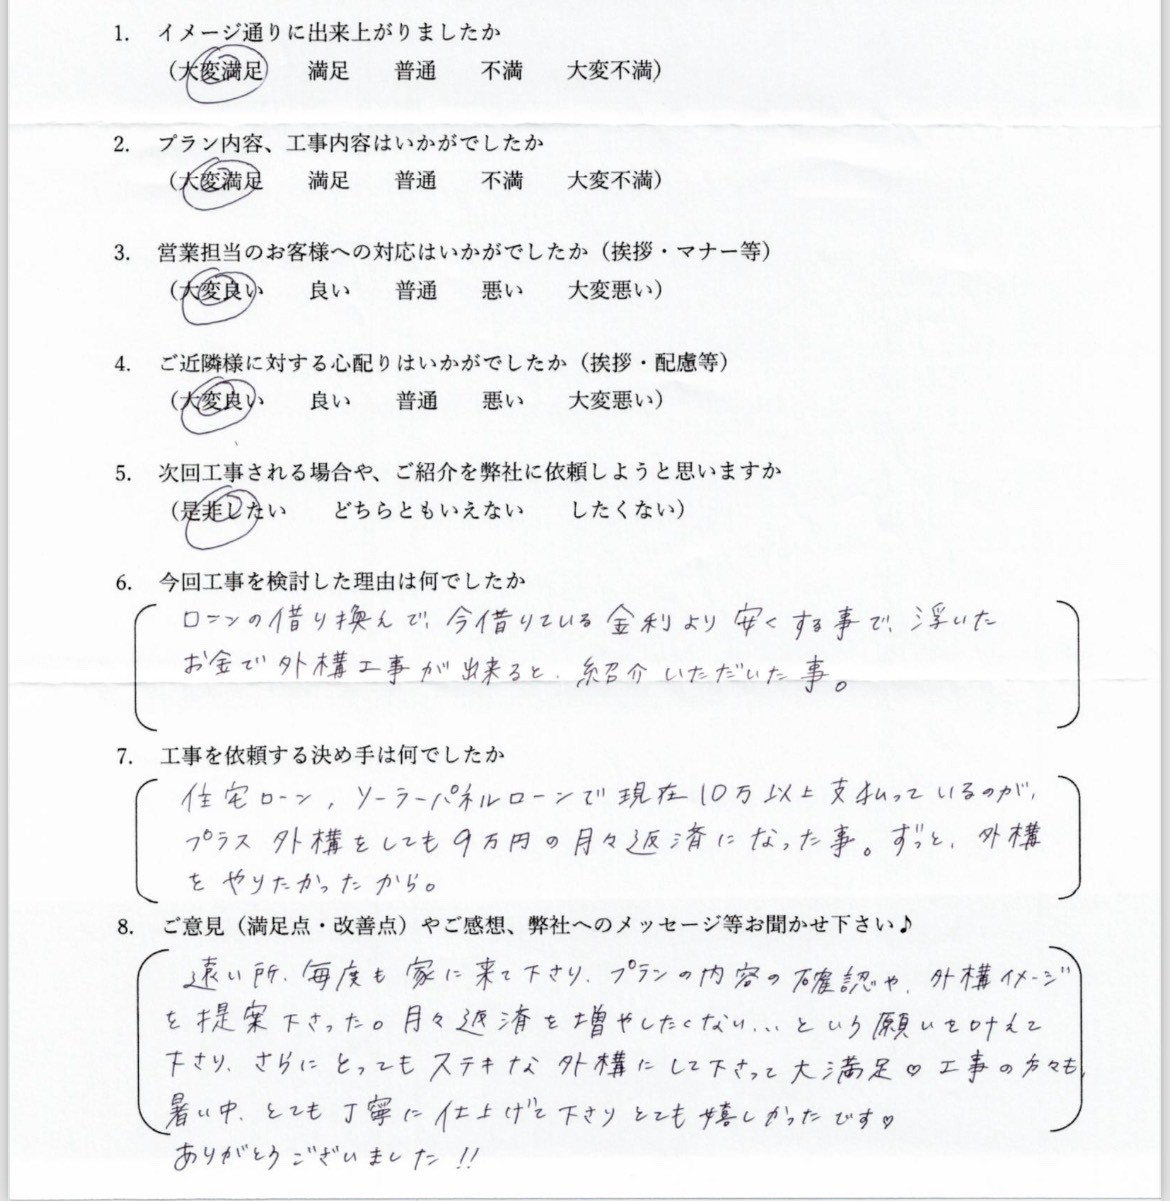 1. イメージ通りに出来上がりましたか
(大変満足 満足 普通 不満 大変不満)
2. プラン内容、工事内容はいかがでしたか
(大変満足 満足 普通 不満 大変不満)
3. 営業担当のお客様への対応はいかがでしたか(挨拶・マナー等)
(大変良い 良い 普通 悪い 大変悪い)
4. ご近隣様に対する心配りはいかがでしたか(挨拶・配慮等)
(大変良い 良い 普通 悪い 大変悪い)
5. 次回工事される場合や、ご紹介を弊社に依頼しようと思いますか
(是非したい どちらともいえない したくない)
6. 今回工事を検討した理由は何でしたか
ローンの借り換んで、今借りている金利より安くする事で、浮いた
お金で外構工事が出来ると、紹介いただいた事。
7. 工事を依頼する決め手は何でしたか
住宅ローン、ソーラーパネルローンで現在10万以上支払っているのが、
プラス外構をしても9万円の月々返済になった事。ずっと、外構
をやりたかったから。
8. ご意見(満足点・改善点)やご感想、弊社へのメッセージ等お聞かせ下さい♪
遠い所、毎度も家に来て下さり、プランの内容の確認や、外構イメージ
を提案下さった。月々返済を増やしたくない...という願いを叶えて
下さり、さらにとってもステキな外構にして下さって大満足♡工事の方々も、
暑い中、とても丁寧に仕上げて下さりとても嬉しかったです♡
ありがとうございました!!